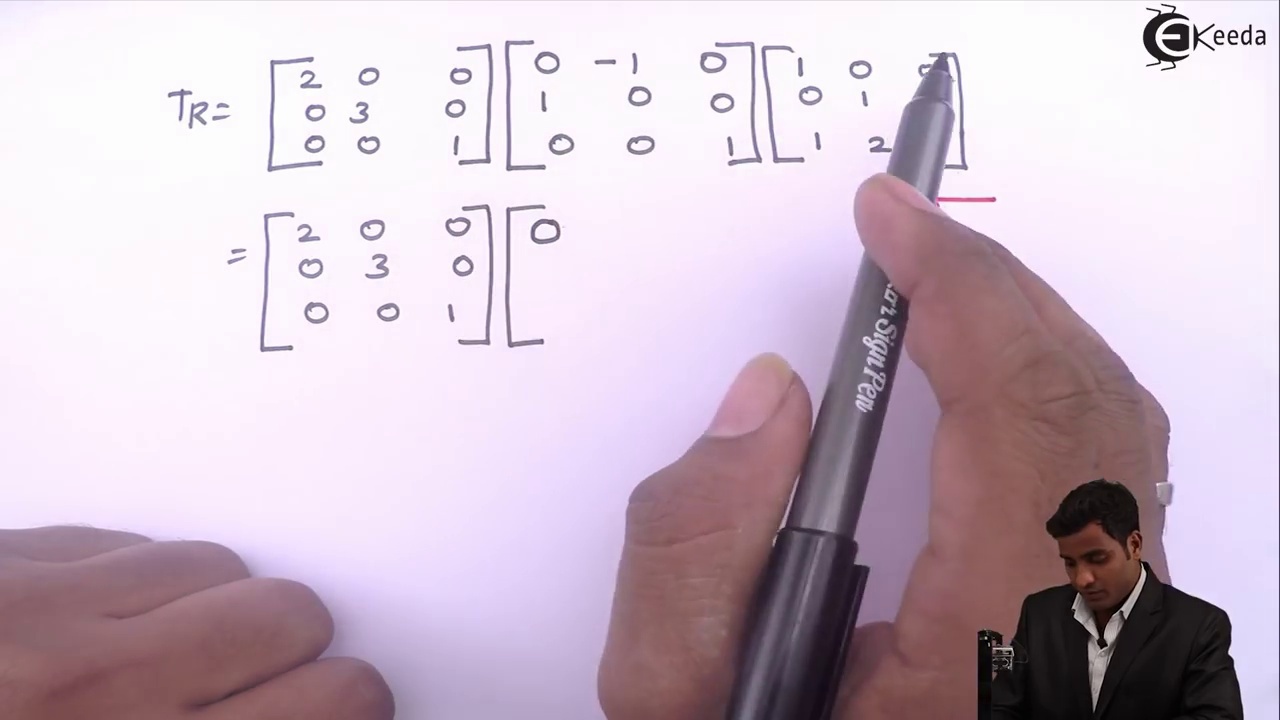 Keeda
T_R = [ 2 0 0 ] [ 0 -1 0 ] [ 1 0 0 ]
[ 0 3 0 ] [ 1 0 0 ] [ 0 1 ]
[ 0 0 1 ] [ 0 0 1 ] [ 1 2 ]
= [ 2 0 0 ] [ 0
[ 0 3 0 ]
[ 0 0 1 ]
Sign Pen